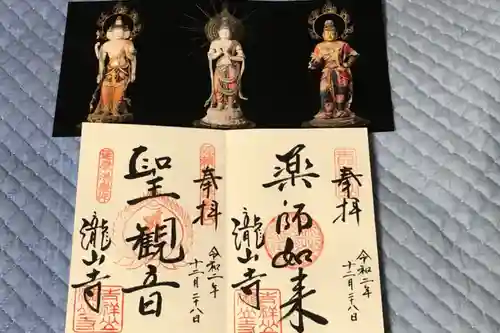 奉拝
薬師如来
令和二年
十二月二十八日
瀧山寺
吉祥
奉拝
聖観音
令和二年
十二月二十八日
瀧山寺
吉祥